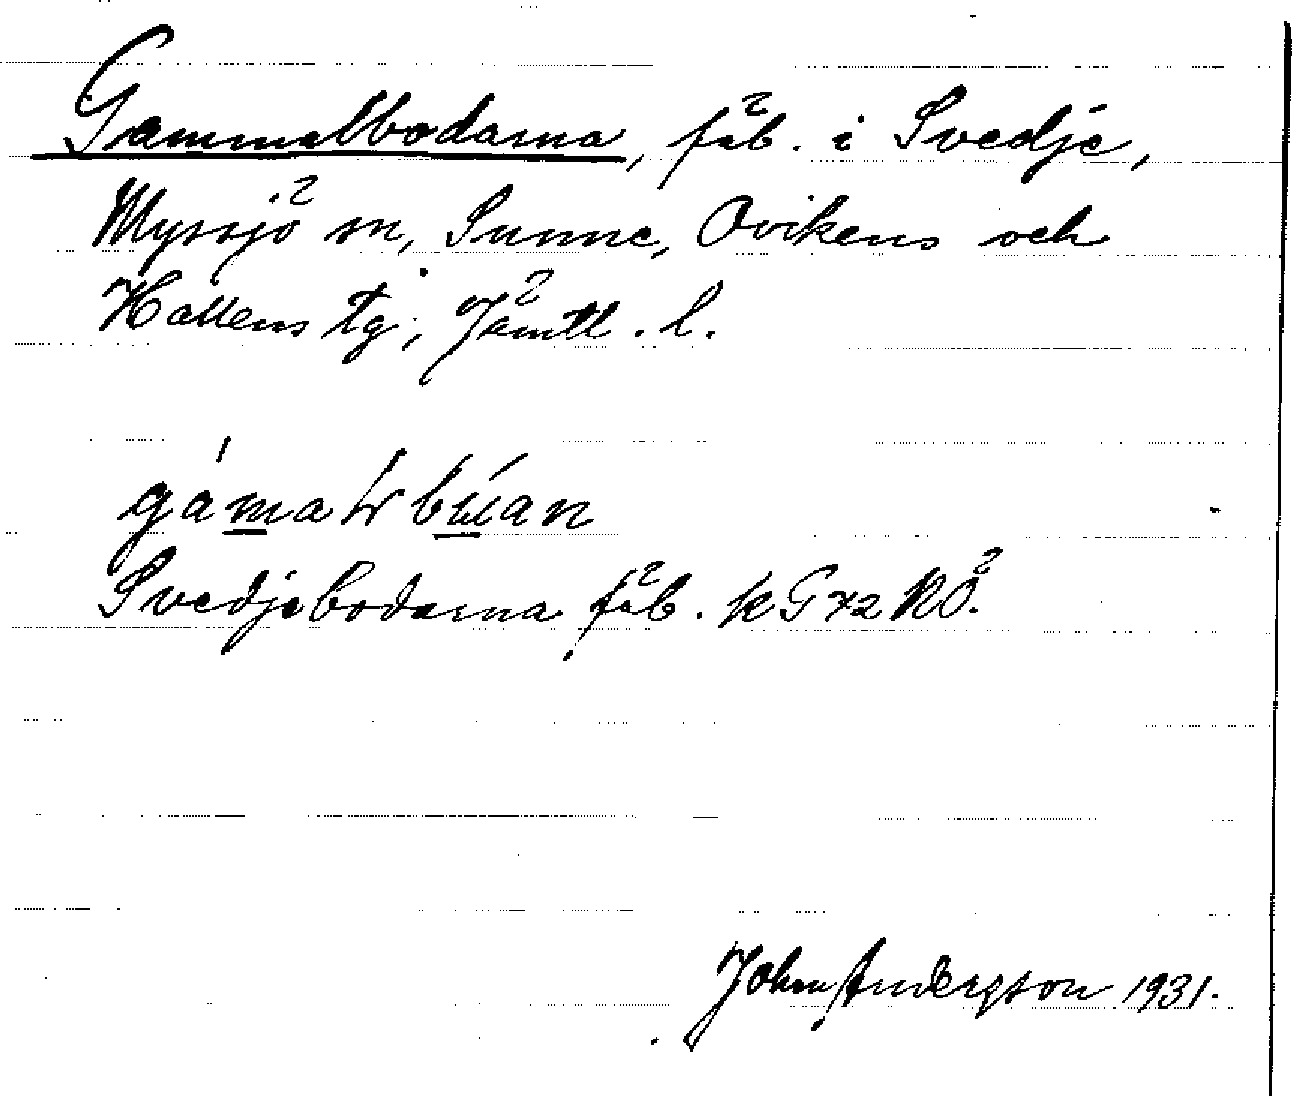 Gammelbodarna, fäb. i Svedje,
Myssjö sn, Sunne, Ovikens och
Hallens tg; Jämtl. l.
Svedjebodarna fäb.
John Andersson 1931.